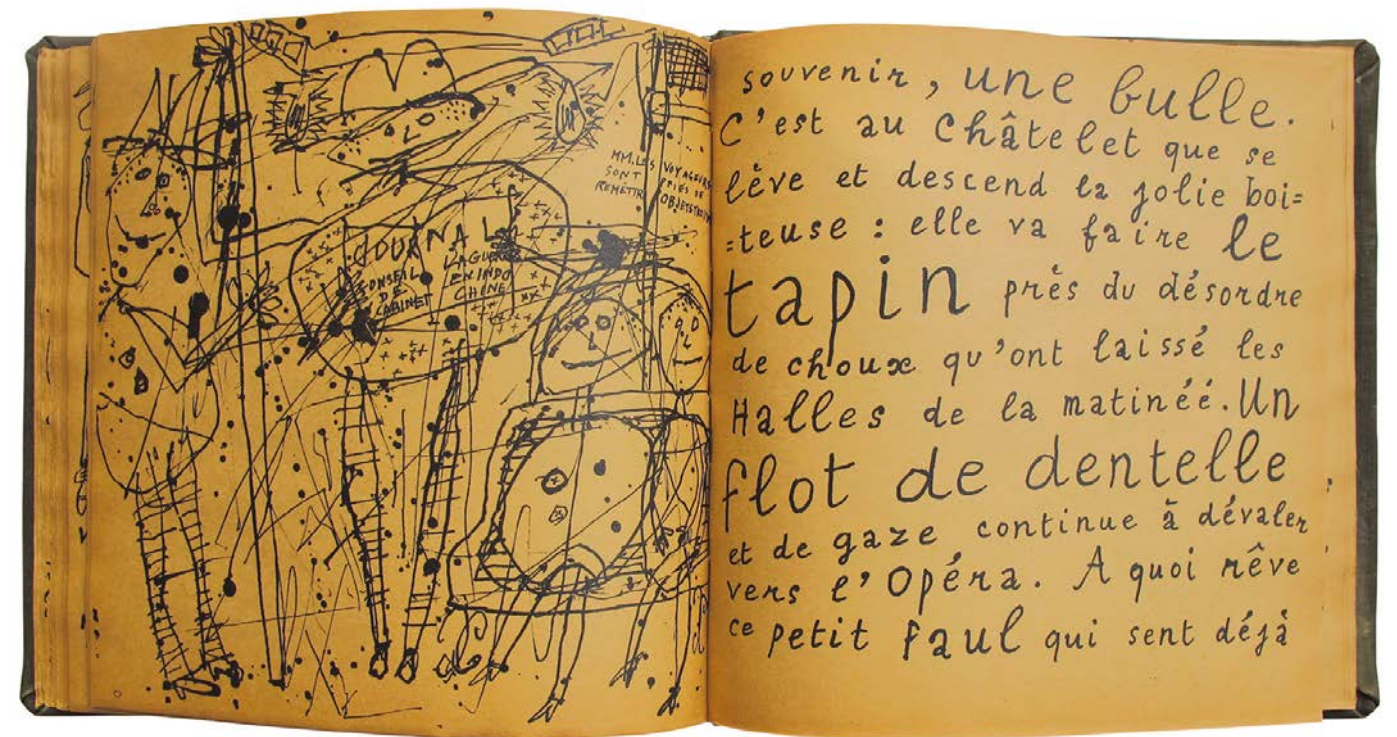 MM. LES VOYAGEURS
SONT PRIÉS DE
REMETTR OBJETS
JOURNAL
CONSEIL
DE
CABINET
LAGUERR
EN INDO
CHINE
souvenir, une bulle.
C'est au Châtelet que se
lève et descend la jolie boi=
=teuse : elle va faire le
tapin près du désordre
de choux qu'ont laissé les
Halles de la matinéé. Un
flot de dentelle
et de gaze continue à dévaler
vers l'Opéra. A quoi rêve
ce petit faul qui sent déjà